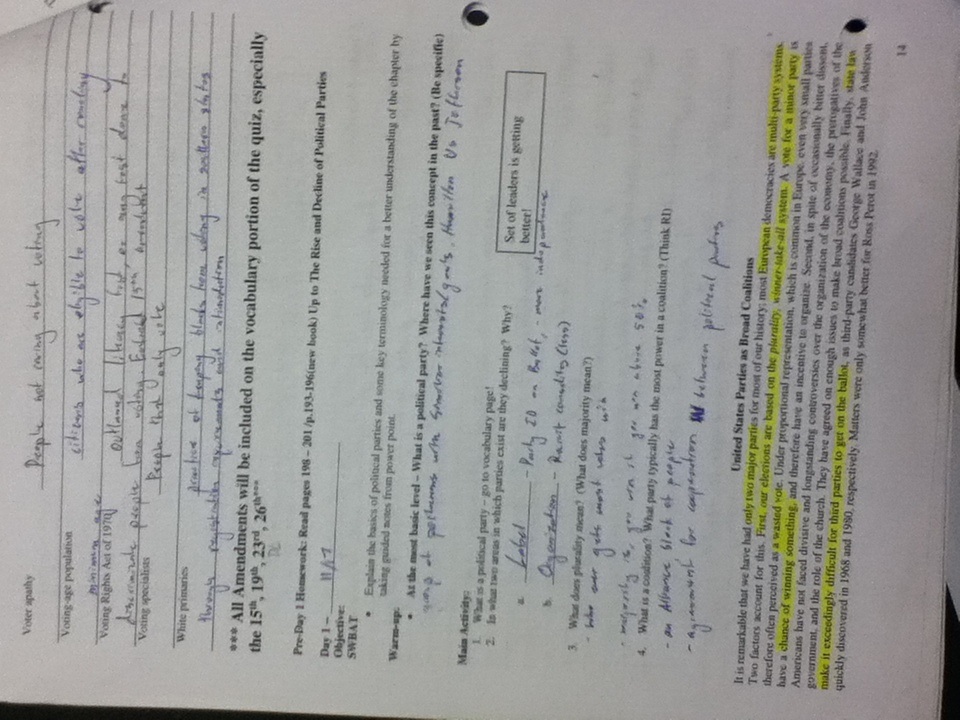 Voter apathy
People not caring about voting
Voting-age population
citizens who are eligible to vote after reaching
minimum age
Voting Rights Act of 1970
outlawed literacy test, or any test done to
discriminate people from voting. Enforced 15th Amendment
Voting specialists
People that only vote
White primaries
practice of keeping blacks from voting in southern states
through registration requirements and intimidation
*** All Amendments will be included on the vocabulary portion of the quiz, especially
the 15th, 19th, 23rd, 26th***
DC
Pre-Day 1 Homework: Read pages 198 – 201 /p.193-196(new book) Up to The Rise and Decline of Political Parties
Day 1 –
Objective:
SWBAT
• Explain the basics of political parties and some key terminology needed for a better understanding of the chapter by
taking guided notes from power point.
Warm-up:
• At the most basic level – What is a political party? Where have we seen this concept in the past? (Be specific)
group of with similar goals. Hamilton Vs Jefferson
Main Activity:
1. What is a political party – go to vocabulary page!
2. In what two areas in which parties exist are they declining? Why?
Set of leaders is getting
better!
a. Label - Party ID on Ballot, - more independence
b. Organization - (less)
3. What does plurality mean? (What does majority mean?)
- who ever gets most votes win
- majority is, you win if you win above 50%
4. What is a coalition? What party typically has the most power in a coalition? (Think RI)
- an Alliance, block of people
- agreement for cooperation between political parties
United States Parties as Broad Coalitions
It is remarkable that we have had only two major parties for most of our history; most European democracies are multi-party systems.
Two factors account for this. First, our elections are based on the plurality, winner-take-all system. A vote for a minor party is
therefore often perceived as a wasted vote. Under proportional representation, which is common in Europe, even very small parties
have a chance of winning something, and therefore have an incentive to organize. Second, in spite of occasionally bitter dissent,
Americans have not faced divisive and longstanding controversies over the organization of the economy, the prerogatives of the
government, and the role of the church. They have agreed on enough issues to make broad coalitions possible. Finally, state law
make it exceedingly difficult for third parties to get on the ballot, as third-party candidates George Wallace and John Anderson
quickly discovered in 1968 and 1980, respectively. Matters were only somewhat better for Ross Perot in 1992.
14